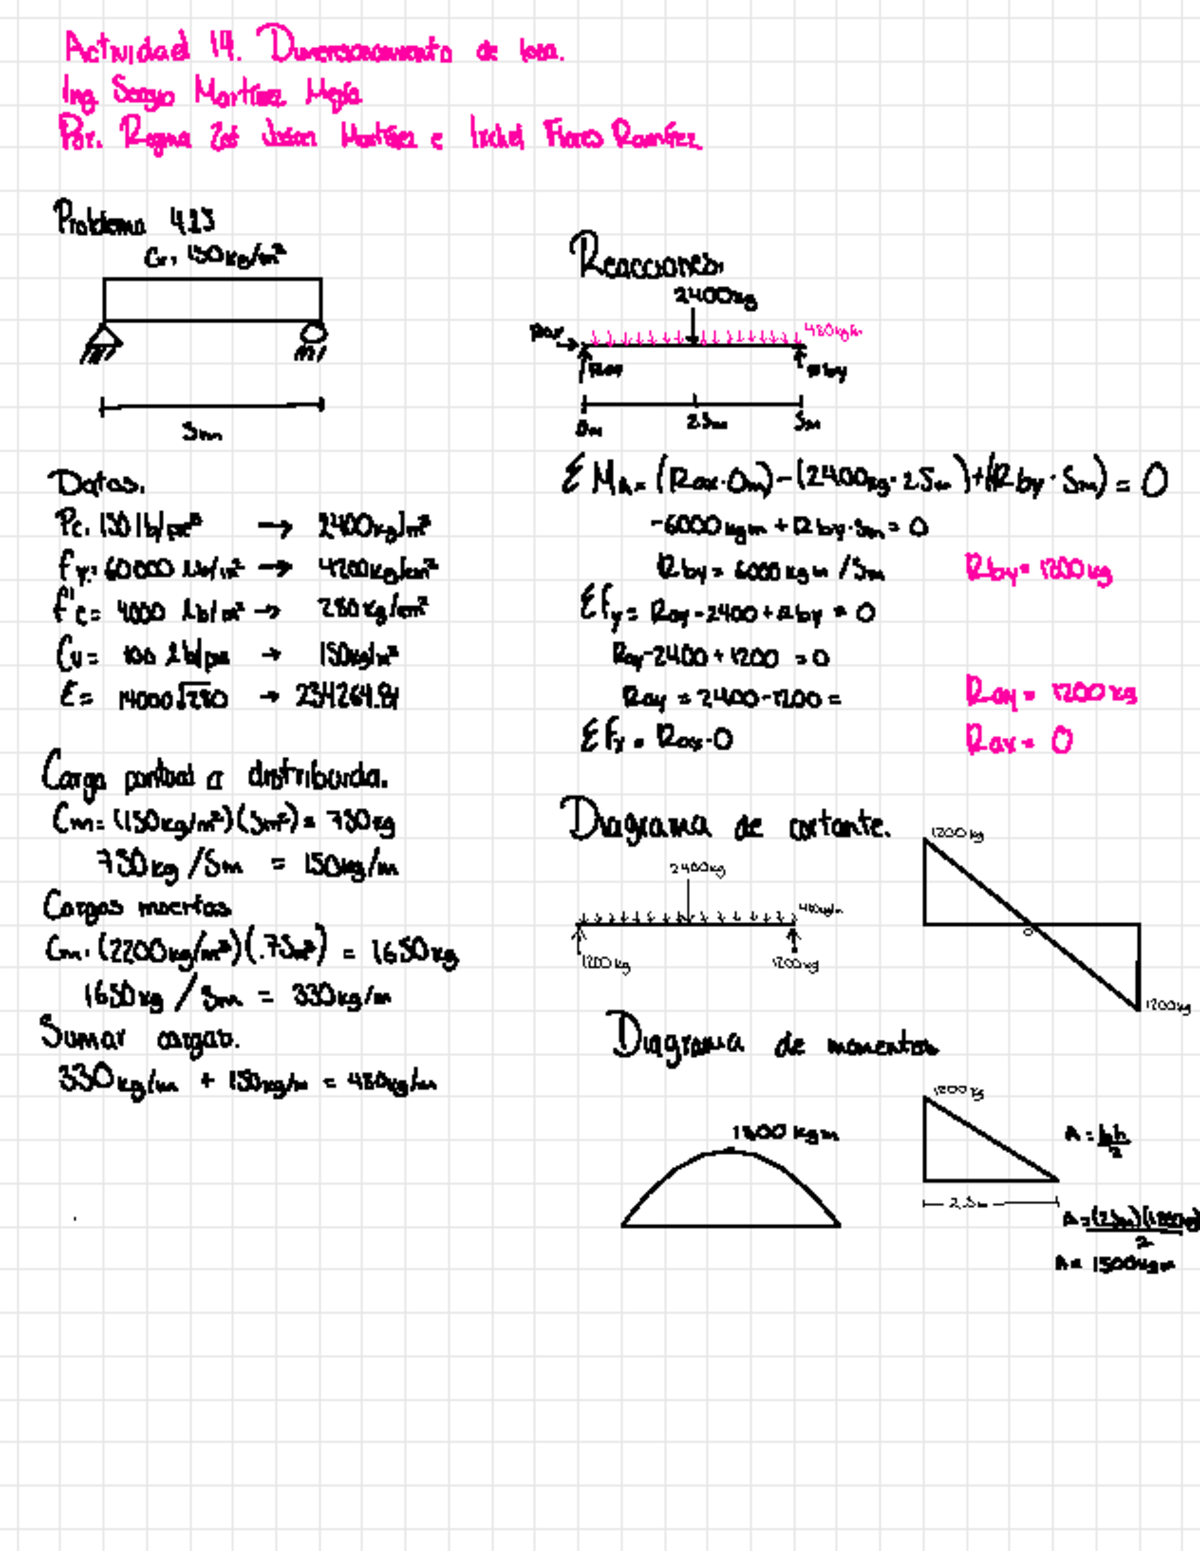 Actividad 14. Dimensionamiento de losa.
Ing. Sergio Martínez Mejía
Por. Martínez e Ixchel Flores Ramírez
Problema 4.23
150kg/m²
5m
Datos.
150 lb/pie³ → 2400kg/m³
fy= 60000 lb/in² → 4200kg/cm²
f'c= 4000 → 280kg/cm²
Cv= 100 → 150kg/m²
E= 14000√280 → 234264.81
Carga puntual a distribuida.
Cm= (150kg/m²)(5m²)= 750kg
750kg /5m = 150kg/m
Cargas muertas
Cm. (2200kg/m³)(.75m³) = 1650kg
1650kg / 5m = 330kg/m
Sumar cargas.
330kg/m + 150kg/m = 480kg/m
Reacciones.
2400kg
Rax 480kg/m
Ray Rby
0m 2.5m 5m
ΣMA= (Rax·0m)-(2400kg·2.5m)+(Rby·5m) = 0
-6000kgm + Rby·5m = 0
Rby = 6000kgm /5m Rby= 1200kg
Σfy= Ray-2400+Rby = 0
Ray-2400+1200 =0
Ray = 2400-1200 = Ray = 1200kg
Σfx = Rax=0 Rax= 0
Diagrama de cortante.
1200kg
2400kg
480kg/m
1200kg 1200kg
0
1200kg
Diagrama de momentos
1200kg
1500 kgm
A = bh/2
2.5m
A=(2.5m)(1200kg)/2
A= 1500kgm